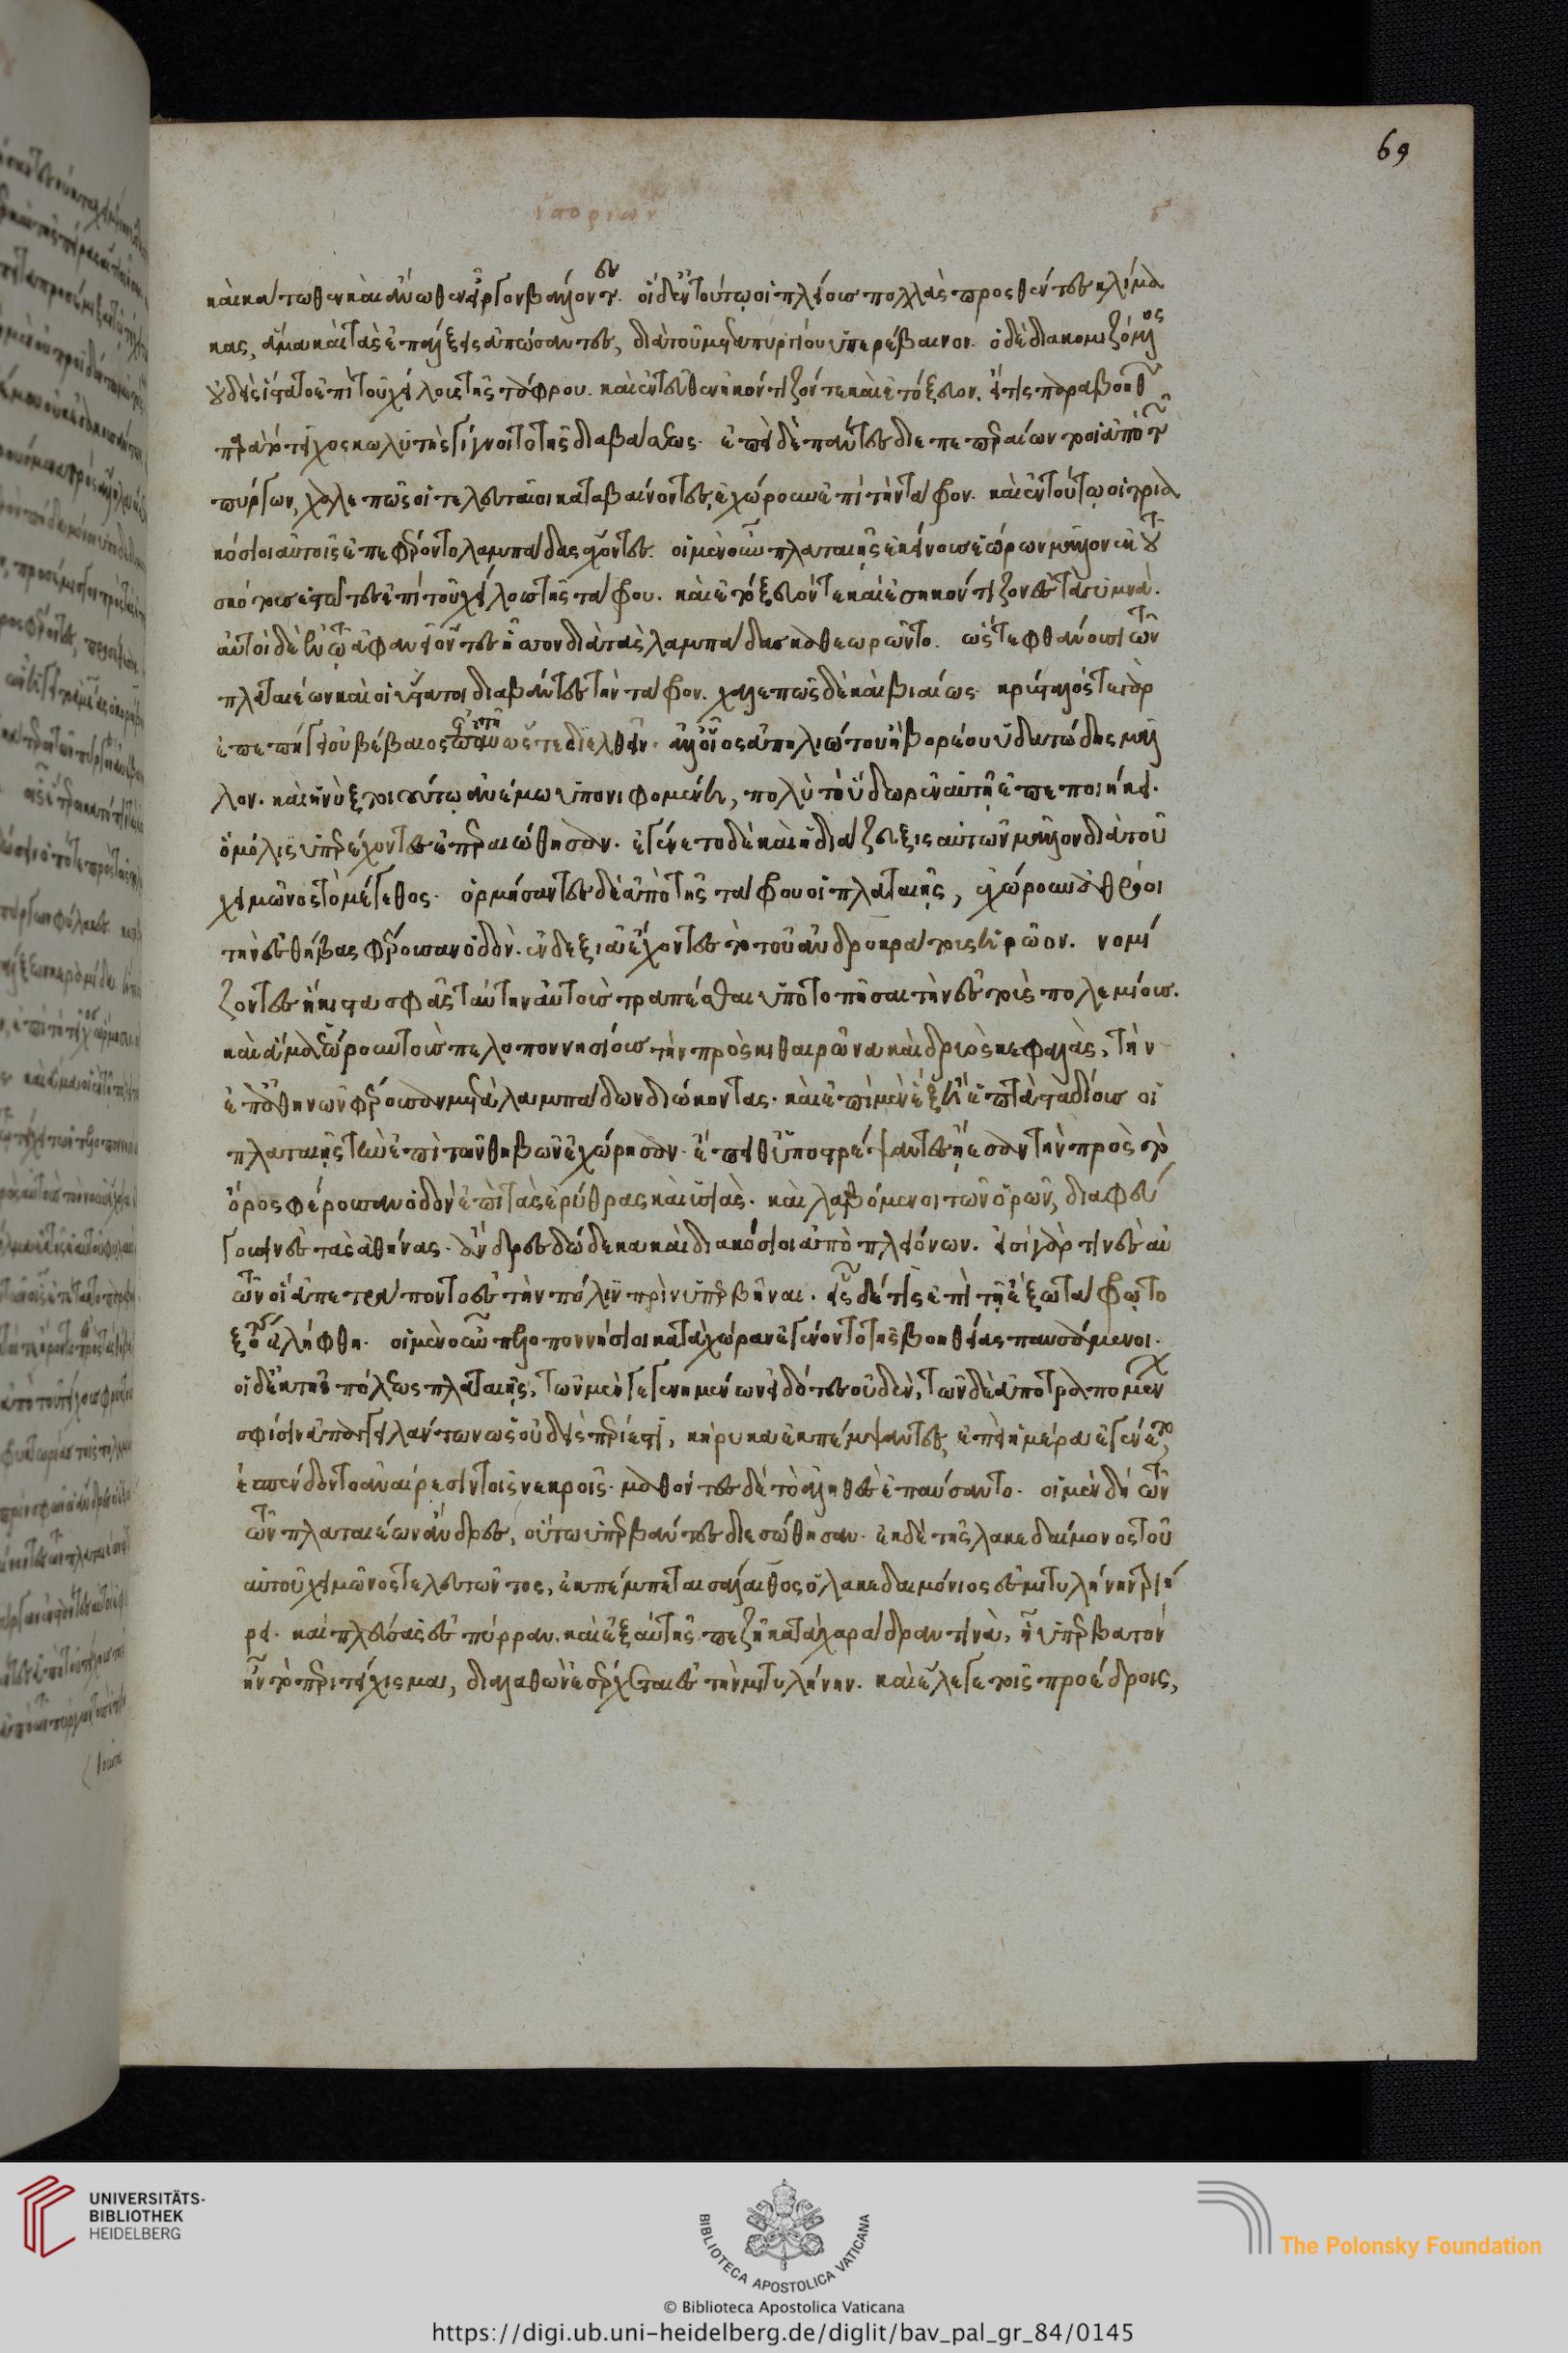 69
ἱστοριῶν γ
καὶ κάτωθεν καὶ ἄνωθεν εἶργον βάλλοντες. οἱ δ' ἐν τούτῳ οἱ πλείους πολλὰς προσθέντες κλίμα
κας, ἅμα καὶ τὰς ἐπάλξεις ἀπώσαντες, διὰ τοῦ μεταπυργίου ὑπερέβαινον. ὁ δὲ διακομιζόμενος
οὐδεὶς ἵστατο ἐπὶ τοῦ χείλους τῆς τάφρου. καὶ ἐντεῦθεν ἠκόντιζόν τε καὶ ἐτόξευον, εἴ τις παραβοηθῶν
παρὰ τὸ τεῖχος κωλυτὴς γίγνοιτο τῆς διαβάσεως. ἐπεὶ δὲ πάντες διεπεπεραίωντο, οἱ ἀπὸ τῶν
πύργων, χαλεπῶς οἱ τελευταῖοι καταβαίνοντες, ἐχώρουν ἐπὶ τὴν τάφρον. καὶ ἐν τούτῳ οἱ τρια
κόσιοι αὐτοῖς ἐπεφέροντο λαμπάδας ἔχοντες. οἱ μὲν οὖν πλαταιῆς ἐκείνους ἑώρων μᾶλλον ἐκ τοῦ
σκότους ἑστῶτες ἐπὶ τοῦ χείλους τῆς τάφρου. καὶ ἐτόξευόν τε καὶ ἐσηκόντιζον ἐς τὰ γυμνά.
αὐτοὶ δὲ ἐν τῷ ἀφανεῖ ὄντες ἧσσον διὰ τὰς λαμπάδας καθεωρῶντο. ὥστε φθάνουσι τῶν
πλαταιέων καὶ οἱ ὕστατοι διαβάντες τὴν τάφρον. χαλεπῶς δὲ καὶ βιαίως. κρύσταλλός τε γὰρ
ἐπεπήγει οὐ βέβαιος ἐν αὐτῇ ὥστ' ἐπελθεῖν. ἀλλ' οἷος ἀπηλιώτου ἢ βορέου ὑδατώδης μᾶλ
λον. καὶ ἡ νὺξ τοιούτῳ ἀνέμῳ ὑπονιφομένη, πολὺ τὸ ὕδωρ ἐν αὐτῇ ἐπεποιήκει.
ὃ μόλις ὑπερέχοντες ἐπεραιώθησαν. ἐγένετο δὲ καὶ ἡ διάζευξις αὐτῶν μᾶλλον διὰ τοῦ
χειμῶνος τὸ μέγεθος. ὁρμήσαντες δὲ ἀπὸ τῆς τάφρου οἱ πλαταιῆς, ἐχώρουν ἀθρόοι
τὴν ἐς θήβας φέρουσαν ὁδόν. ἐν δεξιᾷ ἔχοντες τὸ τοῦ ἀνδροκράτους ἡρῶον. νομί
ζοντες ἥκιστα σφᾶς ταύτην αὐτοὺς τραπέσθαι ὑποτοπῆσαι τὴν ἐς τοὺς πολεμίους.
καὶ ἅμα ἑώρων τοὺς πελοποννησίους τὴν πρὸς κιθαιρῶνα καὶ δρυὸς κεφαλὰς, τὴν
ἐπ' ἀθηνῶν φέρουσαν μετὰ λαμπάδων διώκοντας. καὶ ἐπὶ μὲν ἓξ ἢ ἑπτὰ σταδίους οἱ
πλαταιῆς τὴν ἐπὶ τῶν θηβῶν ἐχώρησαν. ἔπειθ' ὑποστρέψαντες ᾔεσαν τὴν πρὸς τὸ
ὄρος φέρουσαν ὁδὸν ἐπὶ τὰς ἐρύθρας καὶ ὑσιάς. καὶ λαβόμενοι τῶν ὀρῶν, διαφεύ
γουσιν ἐς τὰς ἀθήνας. ἄνδρες δώδεκα καὶ διακόσιοι ἀπὸ πλειόνων. εἰσὶ γὰρ τινὲς αὐ
τῶν οἳ ἀπετράποντο ἐς τὴν πόλιν πρὶν ὑπερβῆναι. εἷς δέ τις ἐπὶ τῇ ἔξω τάφρῳ το
ξότης ἐλήφθη. οἱ μὲν οὖν πελοποννήσιοι κατὰ χώραν ἐγένοντο τῆς βοηθείας παυσάμενοι.
οἱ δ' ἐκ τῆς πόλεως πλαταιῆς, τῶν μὲν γεγενημένων εἰδότες οὐδὲν, τῶν δὲ ἀποτραπομένων
σφίσιν ἀπαγγειλάντων ὡς οὐδεὶς περίεστι, κήρυκα ἐκπέμψαντες, ἐπεὶ ἡμέρα ἐγένετο,
ἐσπένδοντο ἀναίρεσιν τοῖς νεκροῖς. μαθόντες δὲ τὸ ἀληθὲς ἐπαύσαντο. οἱ μὲν δὴ τῶν
τῶν πλαταιέων ἄνδρες, οὕτω ὑπερβάντες διεσώθησαν. ἐκ δὲ τῆς λακεδαίμονος τοῦ
αὐτοῦ χειμῶνος τελευτῶντος, ἐκπέμπεται σάλαιθος ὁ λακεδαιμόνιος ἐς μιτυλήνην τριή
ρει. καὶ πλεύσας ἐς πύρραν, καὶ ἐξ αὐτῆς πεζῇ κατὰ χαράδραν τινὰ, ᾗ ὑπερβατὸν
ἦν τὸ περιτείχισμα, διαλαθὼν ἐσέρχεται ἐς τὴν μιτυλήνην. καὶ ἔλεγε τοῖς προέδροις,
UNIVERSITÄTS-
BIBLIOTHEK
HEIDELBERG
BIBLIOTECA APOSTOLICA VATICANA
The Polonsky Foundation
© Biblioteca Apostolica Vaticana
https://digi.ub.uni-heidelberg.de/diglit/bav_pal_gr_84/0145